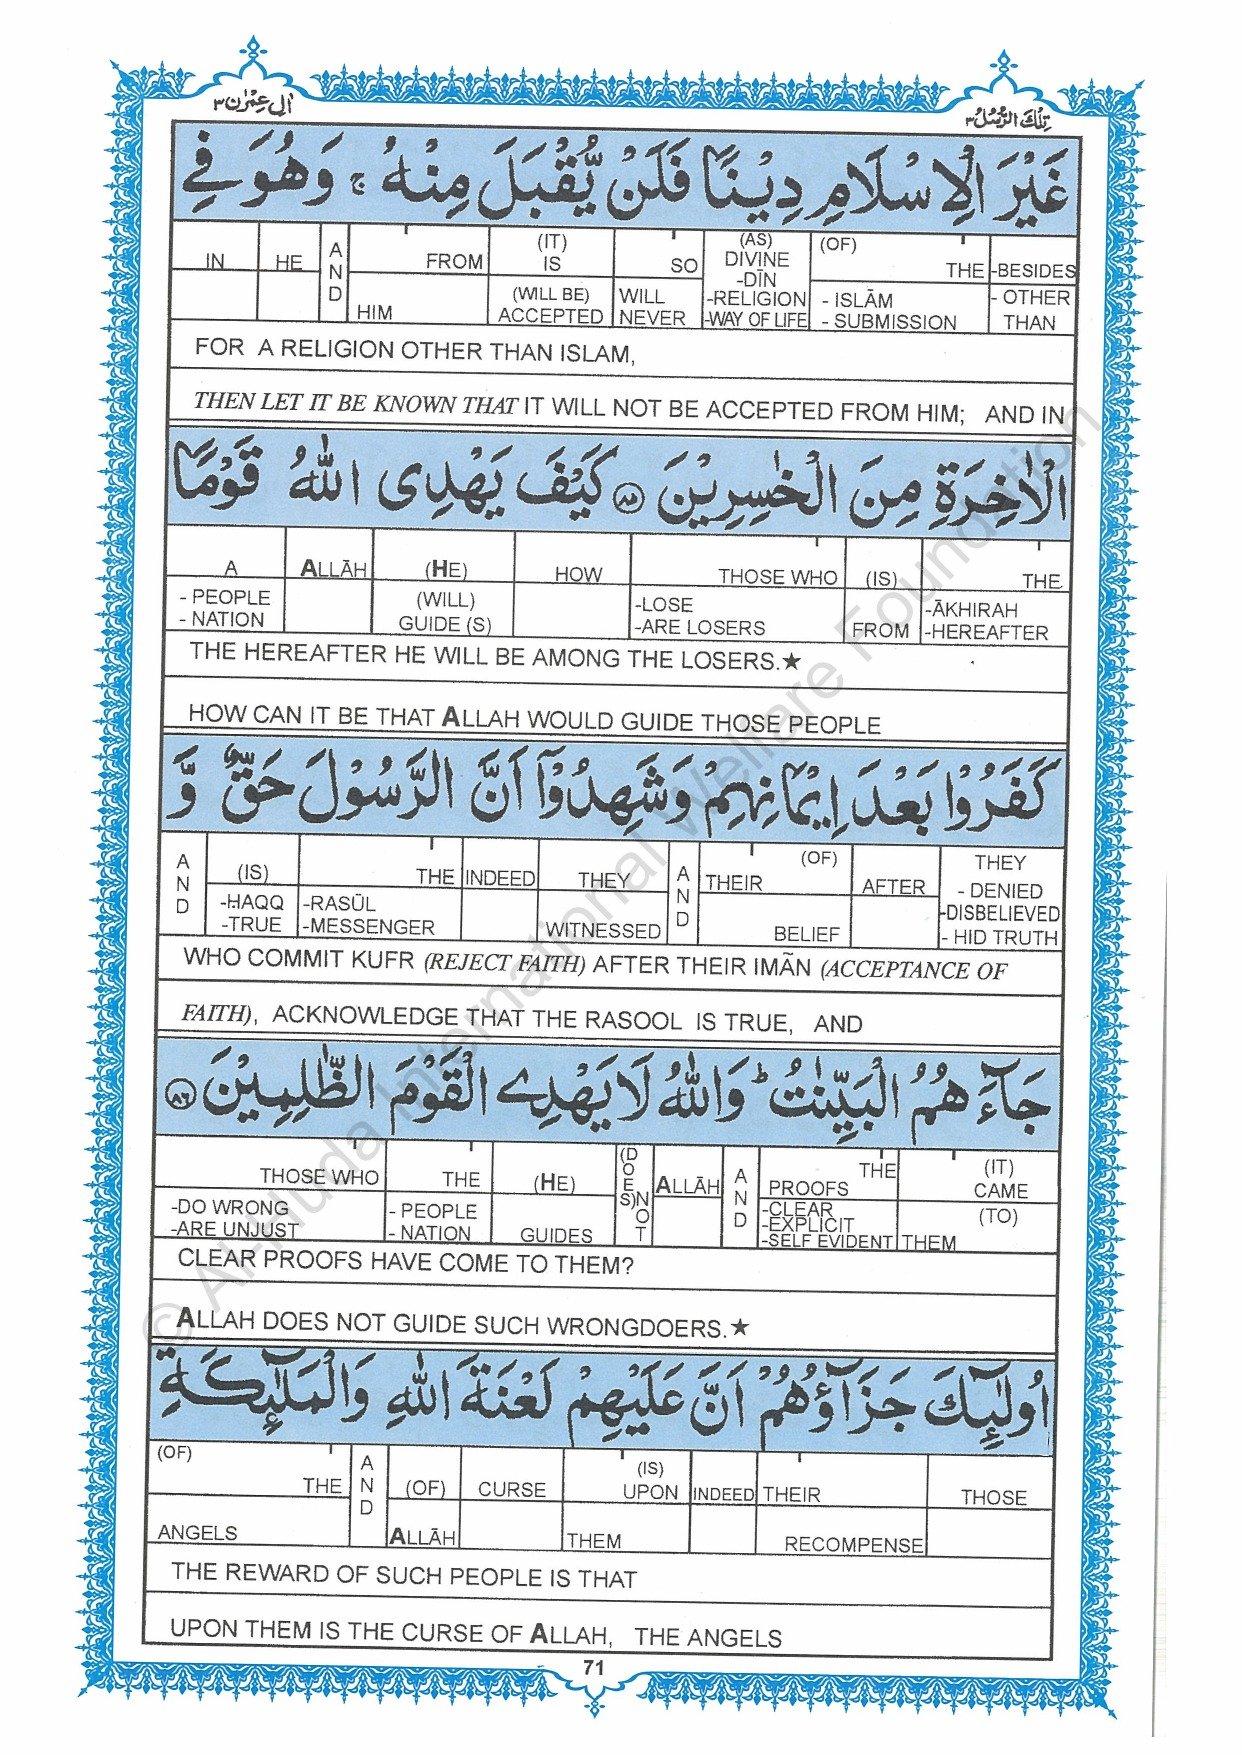 اٰلِ عِمْرٰن ٣
تِلْكَ الرُّسُلُ ٣
غَيْرَ الْاِسْلَامِ دِيْنًا فَلَنْ يُّقْبَلَ مِنْهُ ۚ وَهُوَ فِي
IN HE AND FROM HIM (IT) IS (WILL BE) ACCEPTED SO WILL NEVER (AS) DIVINE -DĪN -RELIGION -WAY OF LIFE (OF) THE - ISLĀM - SUBMISSION -BESIDES - OTHER THAN
FOR A RELIGION OTHER THAN ISLAM,
THEN LET IT BE KNOWN THAT IT WILL NOT BE ACCEPTED FROM HIM; AND IN
الْاٰخِرَةِ مِنَ الْخٰسِرِيْنَ ۝٨٥ كَيْفَ يَهْدِى اللّٰهُ قَوْمًا
A - PEOPLE - NATION ALLĀH (HE) (WILL) GUIDE (S) HOW THOSE WHO -LOSE -ARE LOSERS (IS) FROM THE -ĀKHIRAH -HEREAFTER
THE HEREAFTER HE WILL BE AMONG THE LOSERS.★
HOW CAN IT BE THAT ALLAH WOULD GUIDE THOSE PEOPLE
كَفَرُوْا بَعْدَ اِيْمَانِهِمْ وَشَهِدُوْٓا اَنَّ الرَّسُوْلَ حَقٌّ وَّ
AND (IS) -HAQQ -TRUE THE -RASŪL -MESSENGER INDEED THEY WITNESSED AND (OF) THEIR BELIEF AFTER THEY - DENIED -DISBELIEVED - HID TRUTH
WHO COMMIT KUFR (REJECT FAITH) AFTER THEIR IMĀN (ACCEPTANCE OF
FAITH), ACKNOWLEDGE THAT THE RASOOL IS TRUE, AND
جَآءَهُمُ الْبَيِّنٰتُ ؕ وَاللّٰهُ لَا يَهْدِي الْقَوْمَ الظّٰلِمِيْنَ ۝٨٦
THOSE WHO -DO WRONG -ARE UNJUST THE - PEOPLE - NATION (HE) GUIDES (DOES) NOT ALLĀH AND THE PROOFS -CLEAR -EXPLICIT -SELF EVIDENT (IT) CAME (TO) THEM
CLEAR PROOFS HAVE COME TO THEM?
ALLAH DOES NOT GUIDE SUCH WRONGDOERS.★
اُولٰٓئِكَ جَزَآؤُهُمْ اَنَّ عَلَيْهِمْ لَعْنَةَ اللّٰهِ وَالْمَلٰٓئِكَةِ
(OF) THE ANGELS AND (OF) ALLĀH CURSE (IS) UPON THEM INDEED THEIR RECOMPENSE THOSE
THE REWARD OF SUCH PEOPLE IS THAT
UPON THEM IS THE CURSE OF ALLAH, THE ANGELS
71
© Al-Huda International Welfare Foundation